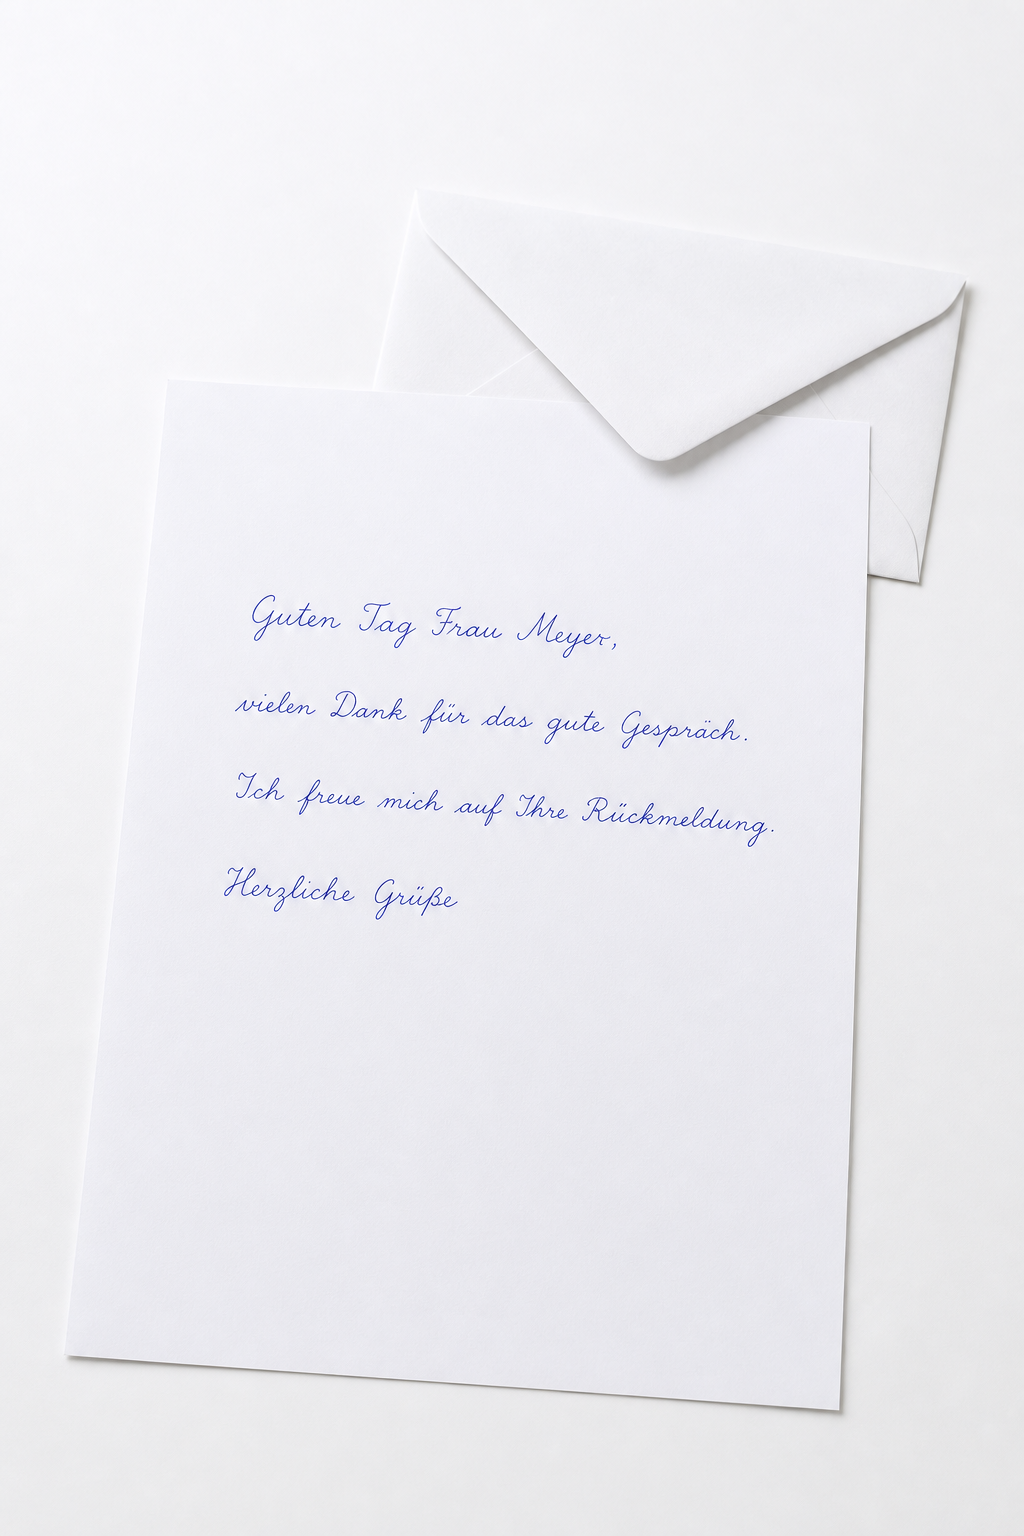 Guten Tag Frau Meyer,
vielen Dank für das gute Gespräch.
Ich freue mich auf Ihre Rückmeldung.
Herzliche Grüße